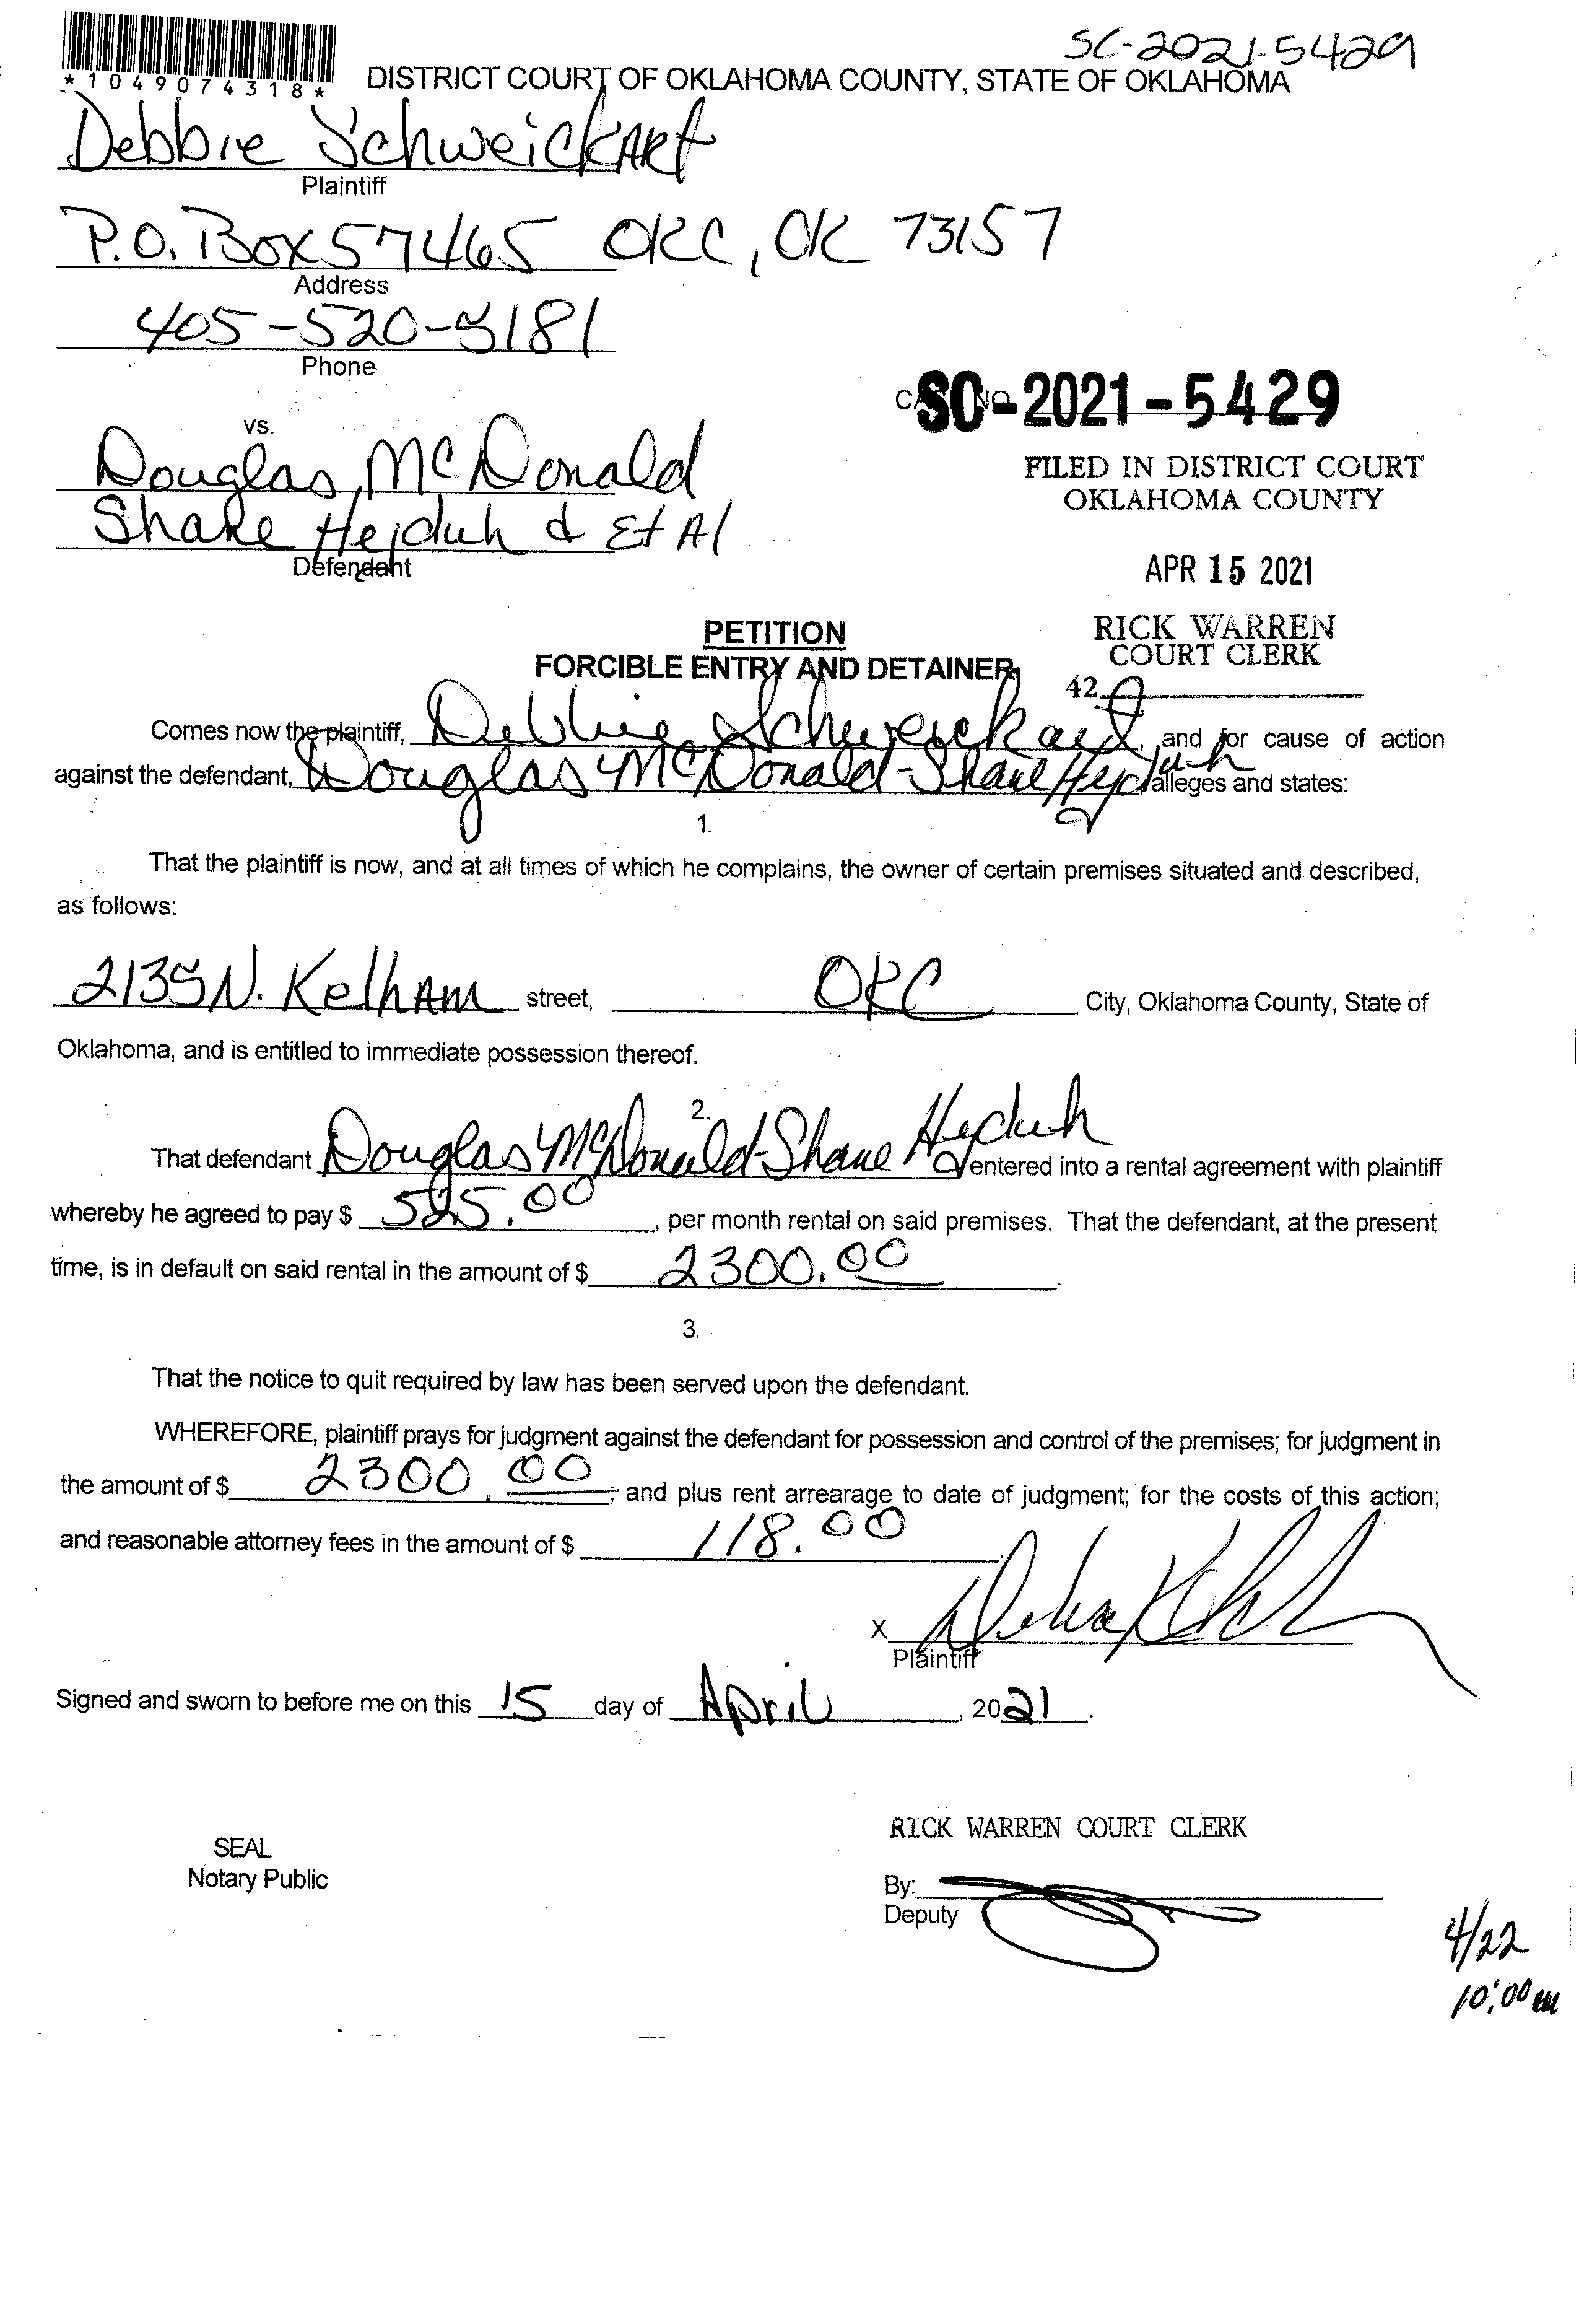 SC-2021-5429
*1049074318*
DISTRICT COURT OF OKLAHOMA COUNTY, STATE OF OKLAHOMA
Debbie Schweickart
Plaintiff
P.O. Box 57465 OKC, OK 73157
Address
405-520-5181
Phone
CASE NO. SC-2021-5429
vs.
Douglas McDonald
Shane Hejduh & Et Al
Defendant
FILED IN DISTRICT COURT
OKLAHOMA COUNTY
APR 15 2021
RICK WARREN
COURT CLERK
42
PETITION
FORCIBLE ENTRY AND DETAINER
Comes now the plaintiff, Debbie Schweickart, and for cause of action
against the defendant, Douglas McDonald-Shane Hejduh alleges and states:
1.
That the plaintiff is now, and at all times of which he complains, the owner of certain premises situated and described,
as follows:
2135 N. Kelham street, OKC City, Oklahoma County, State of
Oklahoma, and is entitled to immediate possession thereof.
2.
That defendant Douglas McDonald-Shane Hejduh entered into a rental agreement with plaintiff
whereby he agreed to pay $ 525.00, per month rental on said premises. That the defendant, at the present
time, is in default on said rental in the amount of $ 2300.00.
3.
That the notice to quit required by law has been served upon the defendant.
WHEREFORE, plaintiff prays for judgment against the defendant for possession and control of the premises; for judgment in
the amount of $ 2300.00; and plus rent arrearage to date of judgment; for the costs of this action;
and reasonable attorney fees in the amount of $ 118.00.
X
Plaintiff
Signed and sworn to before me on this 15 day of April, 2021.
RICK WARREN COURT CLERK
SEAL
Notary Public
By:
Deputy
4/22
10:00 am